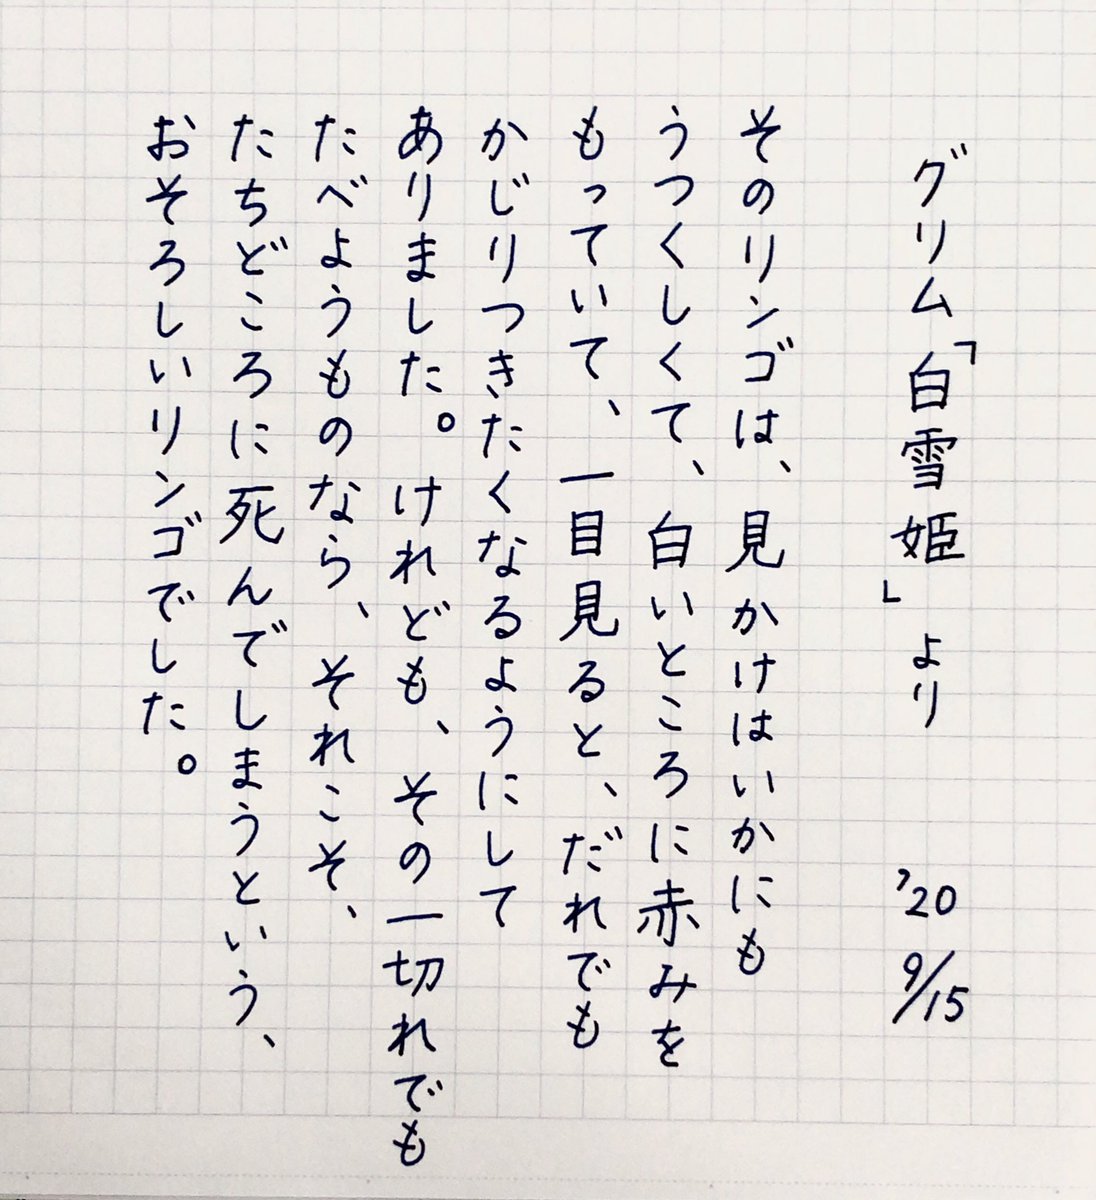 グリム「白雪姫」より　'20 9/15
そのリンゴは、見かけはいかにも
うつくしくて、白いところに赤みを
もっていて、一目見ると、だれでも
かじりつきたくなるようにして
ありました。けれども、その一切れでも
たべようものなら、それこそ、
たちどころに死んでしまうという、
おそろしいリンゴでした。